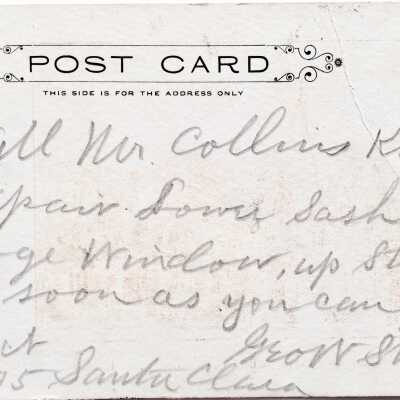 POST CARD
THIS SIDE IS FOR THE ADDRESS ONLY
Mr. Collins
Sash
Window, up
soon as you can
Geo W
Santa Clara